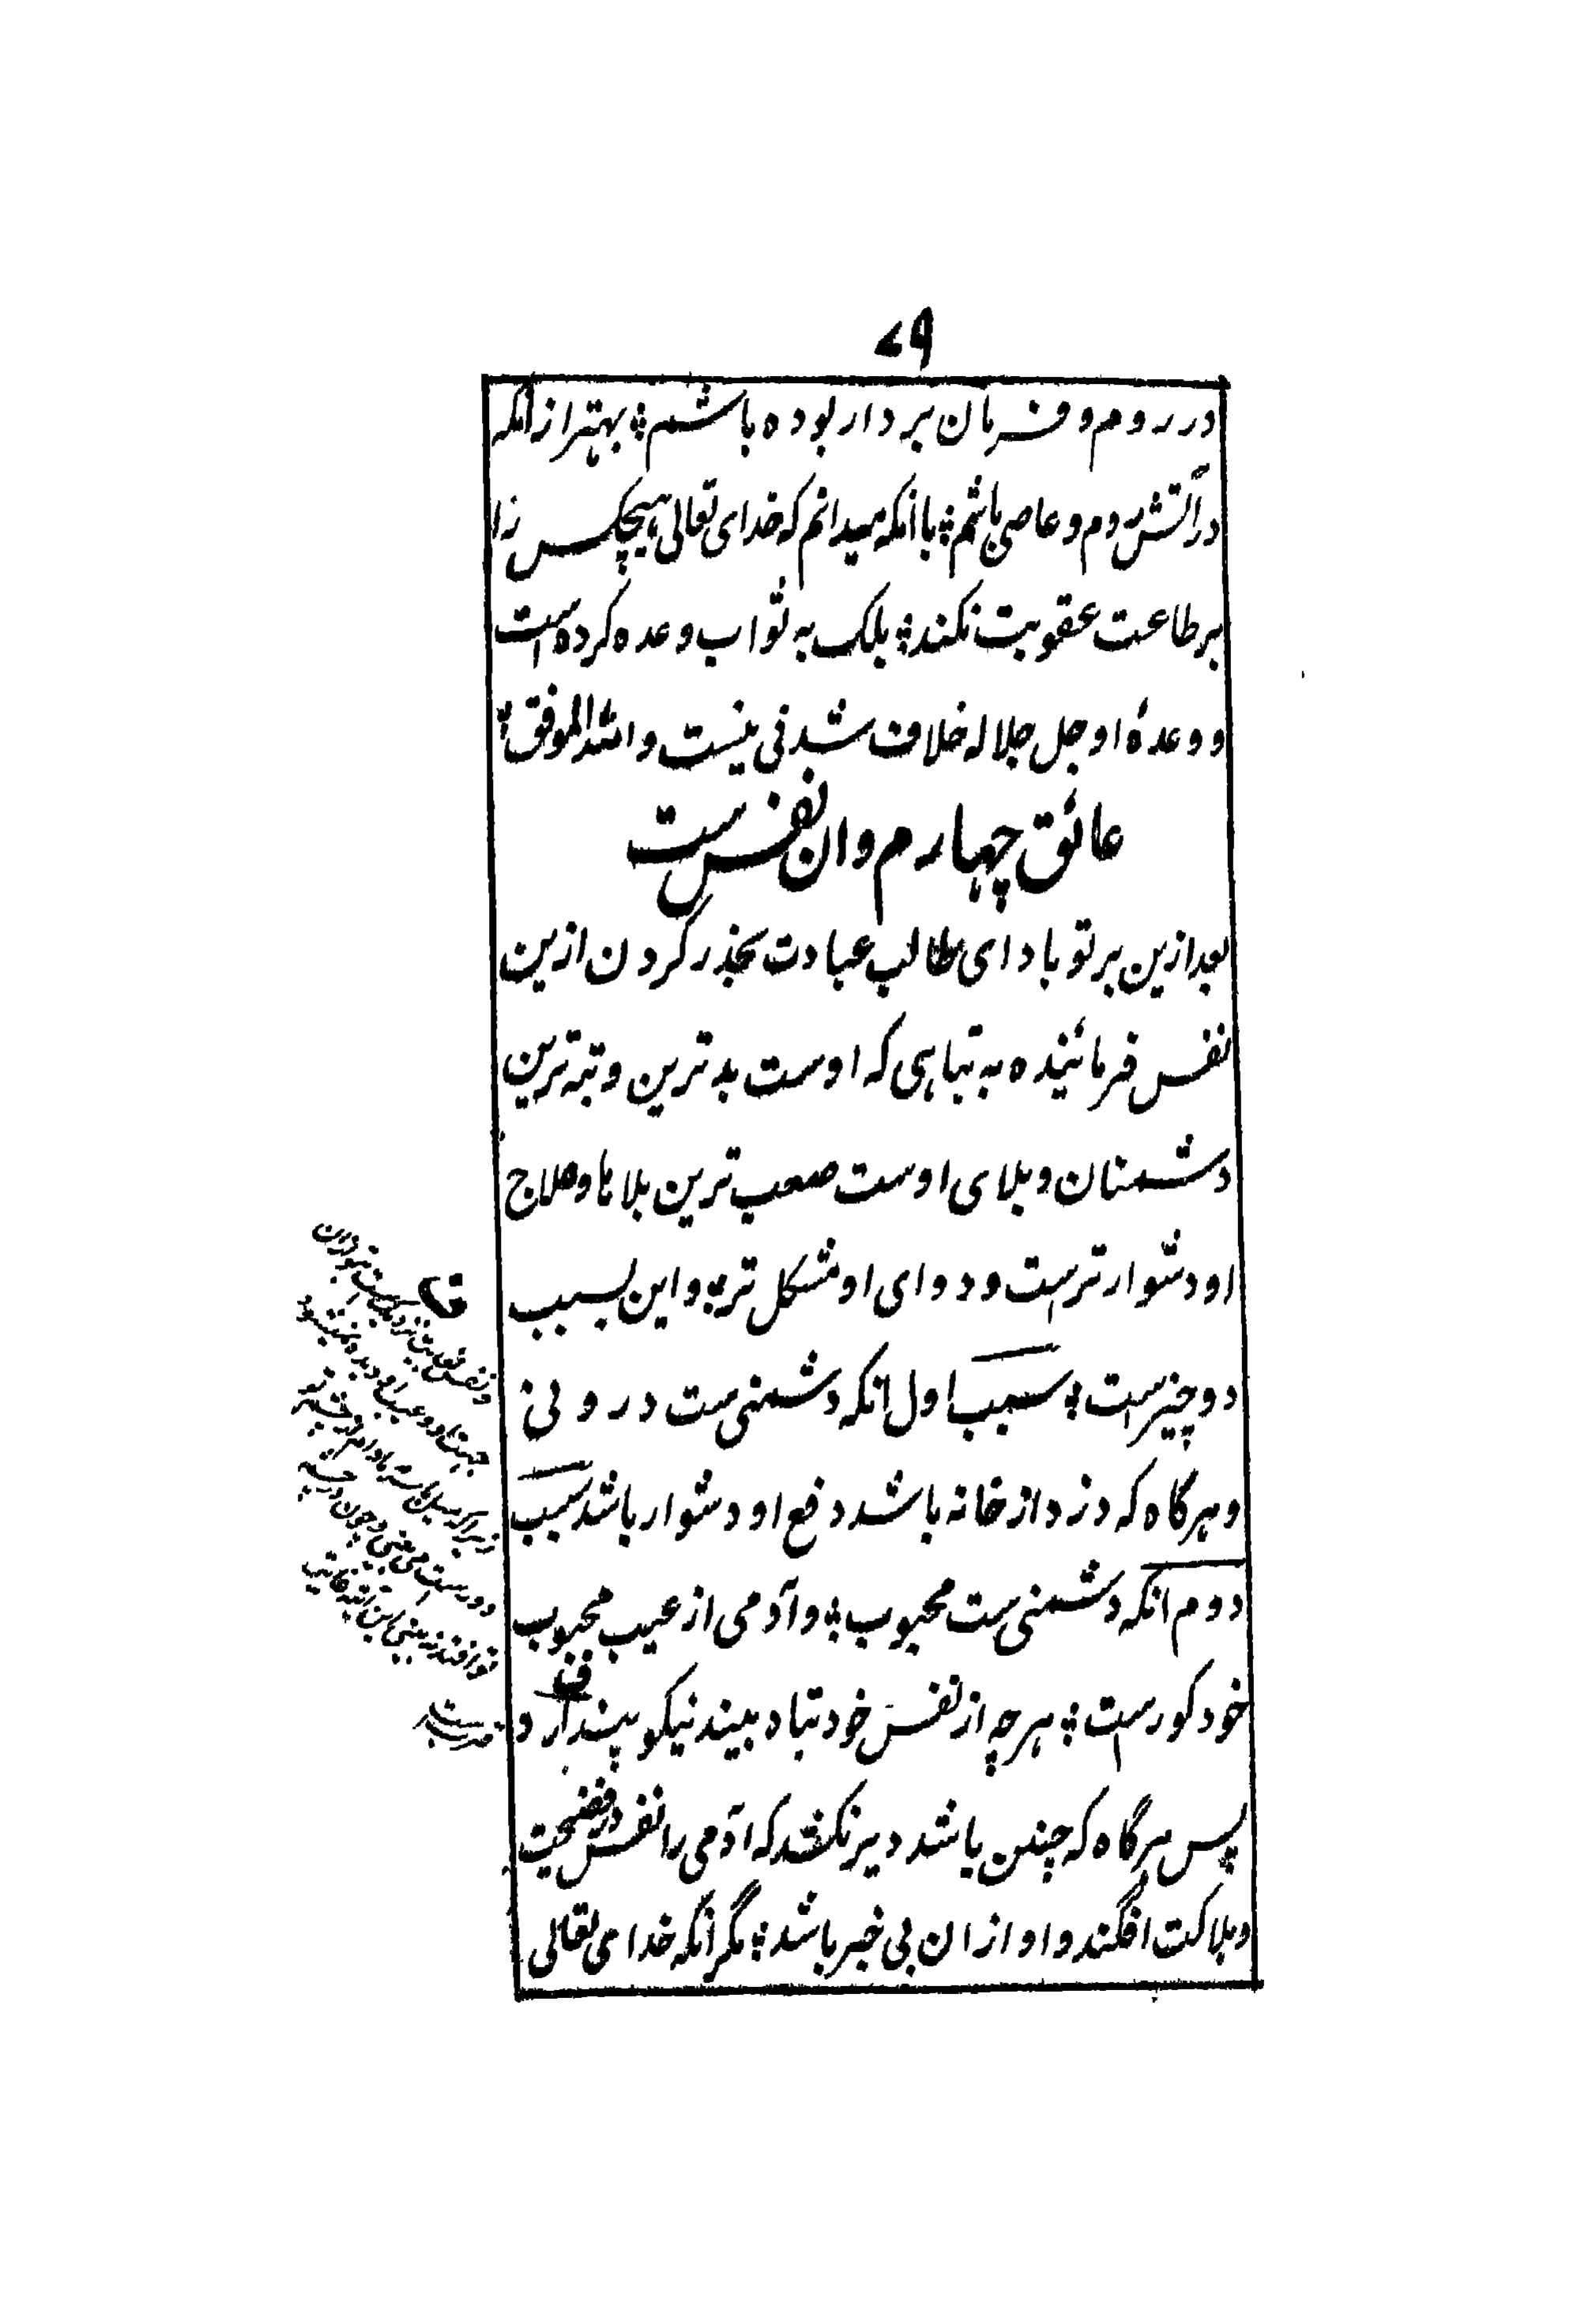 ۷۹
در روم و فرمان بردار بوده باشم؛ بهتر از انکه
در آتش روم و عاصی باشم؛ با انکه میدانم که خدای تعالی هیچکس را
بر طاعت عقوبت نکند؛ بلک به ثواب وعده کرده است
و وعدهٔ او جل جلاله خلاف شدنی نیست والله الموفق؛
عائق چهارم و ان نفس ست
بعد ازین بر تو باد ای طالب عبادت بحذر کردن ازین
نفس فرمائینده به تباهی که اوست بدترین و تبه ترین
دشمنان و بلای اوست صعب ترین بلاها و علاج
او دشوار ترست و دوای او مشکل تر؛ و این بسبب
دو چیزست؛ سبب اول انکه دشمنی ست درونی
و هرگاه که دزد از خانه باشد دفع او دشوار باشد سبب
دوم انکه دشمنی ست محبوب؛ و آدمی از عیب محبوب
خود کورست؛ هر چه از نفس خود تباه بیند نیکو پندارد و
پس هرگاه که چنین باشد دیر نکشد که آدمی را نفس در فضیحت
و هلاکت افگند و او از ان بی خبر باشد؛ مگر انکه خدای تعالی
ف